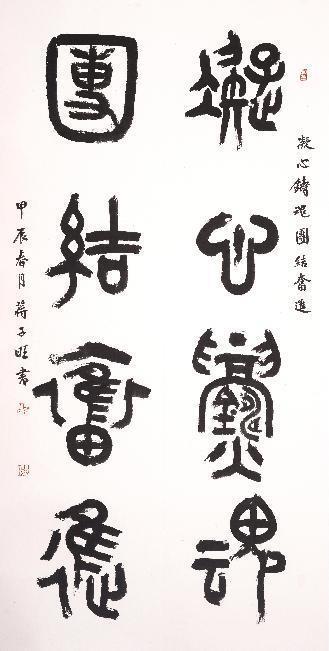 凝心鑄魂團結奮進
凝心鑄魂
團結奮進
甲辰春月蔣子旺書